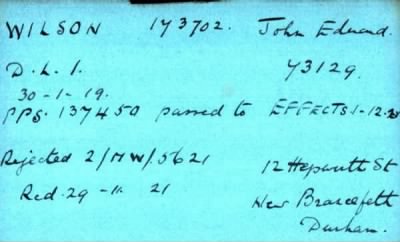 WILSON 173702. John Edward.
D.L.I. 73129.
30-1-19.
PPS. 137450 passed to EFFECTS 1-12-21
Rejected 2/MW/5621 12 Hepworth St
Rcd. 29-11-21 New Brancepeth
Durham.